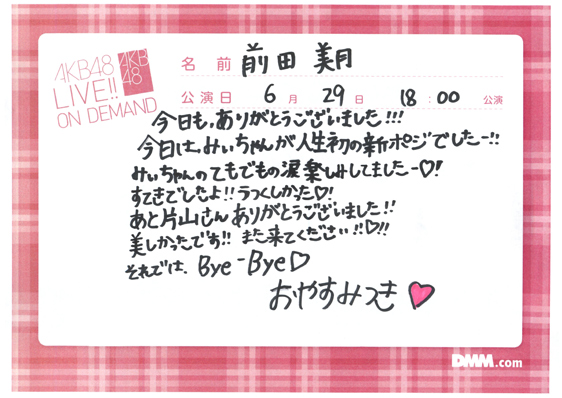 AKB48
LIVE!!
ON DEMAND
AKB
48
名 前 前田 美月
公演日 6月 29日 18:00 公演
今日も、ありがとうございました!!!
今日は、みぃちゃんが人生初の新ポジでしたー!!
みぃちゃんのてもでもの涙楽しみしてましたー♡!
すてきでしたよ!!うつくしかった♡!
あと片山さんありがとうございました!!
美しかったです!! また来てください!!♡!!
それでは、Bye-Bye♡
おやすみつき♥
DMM.com